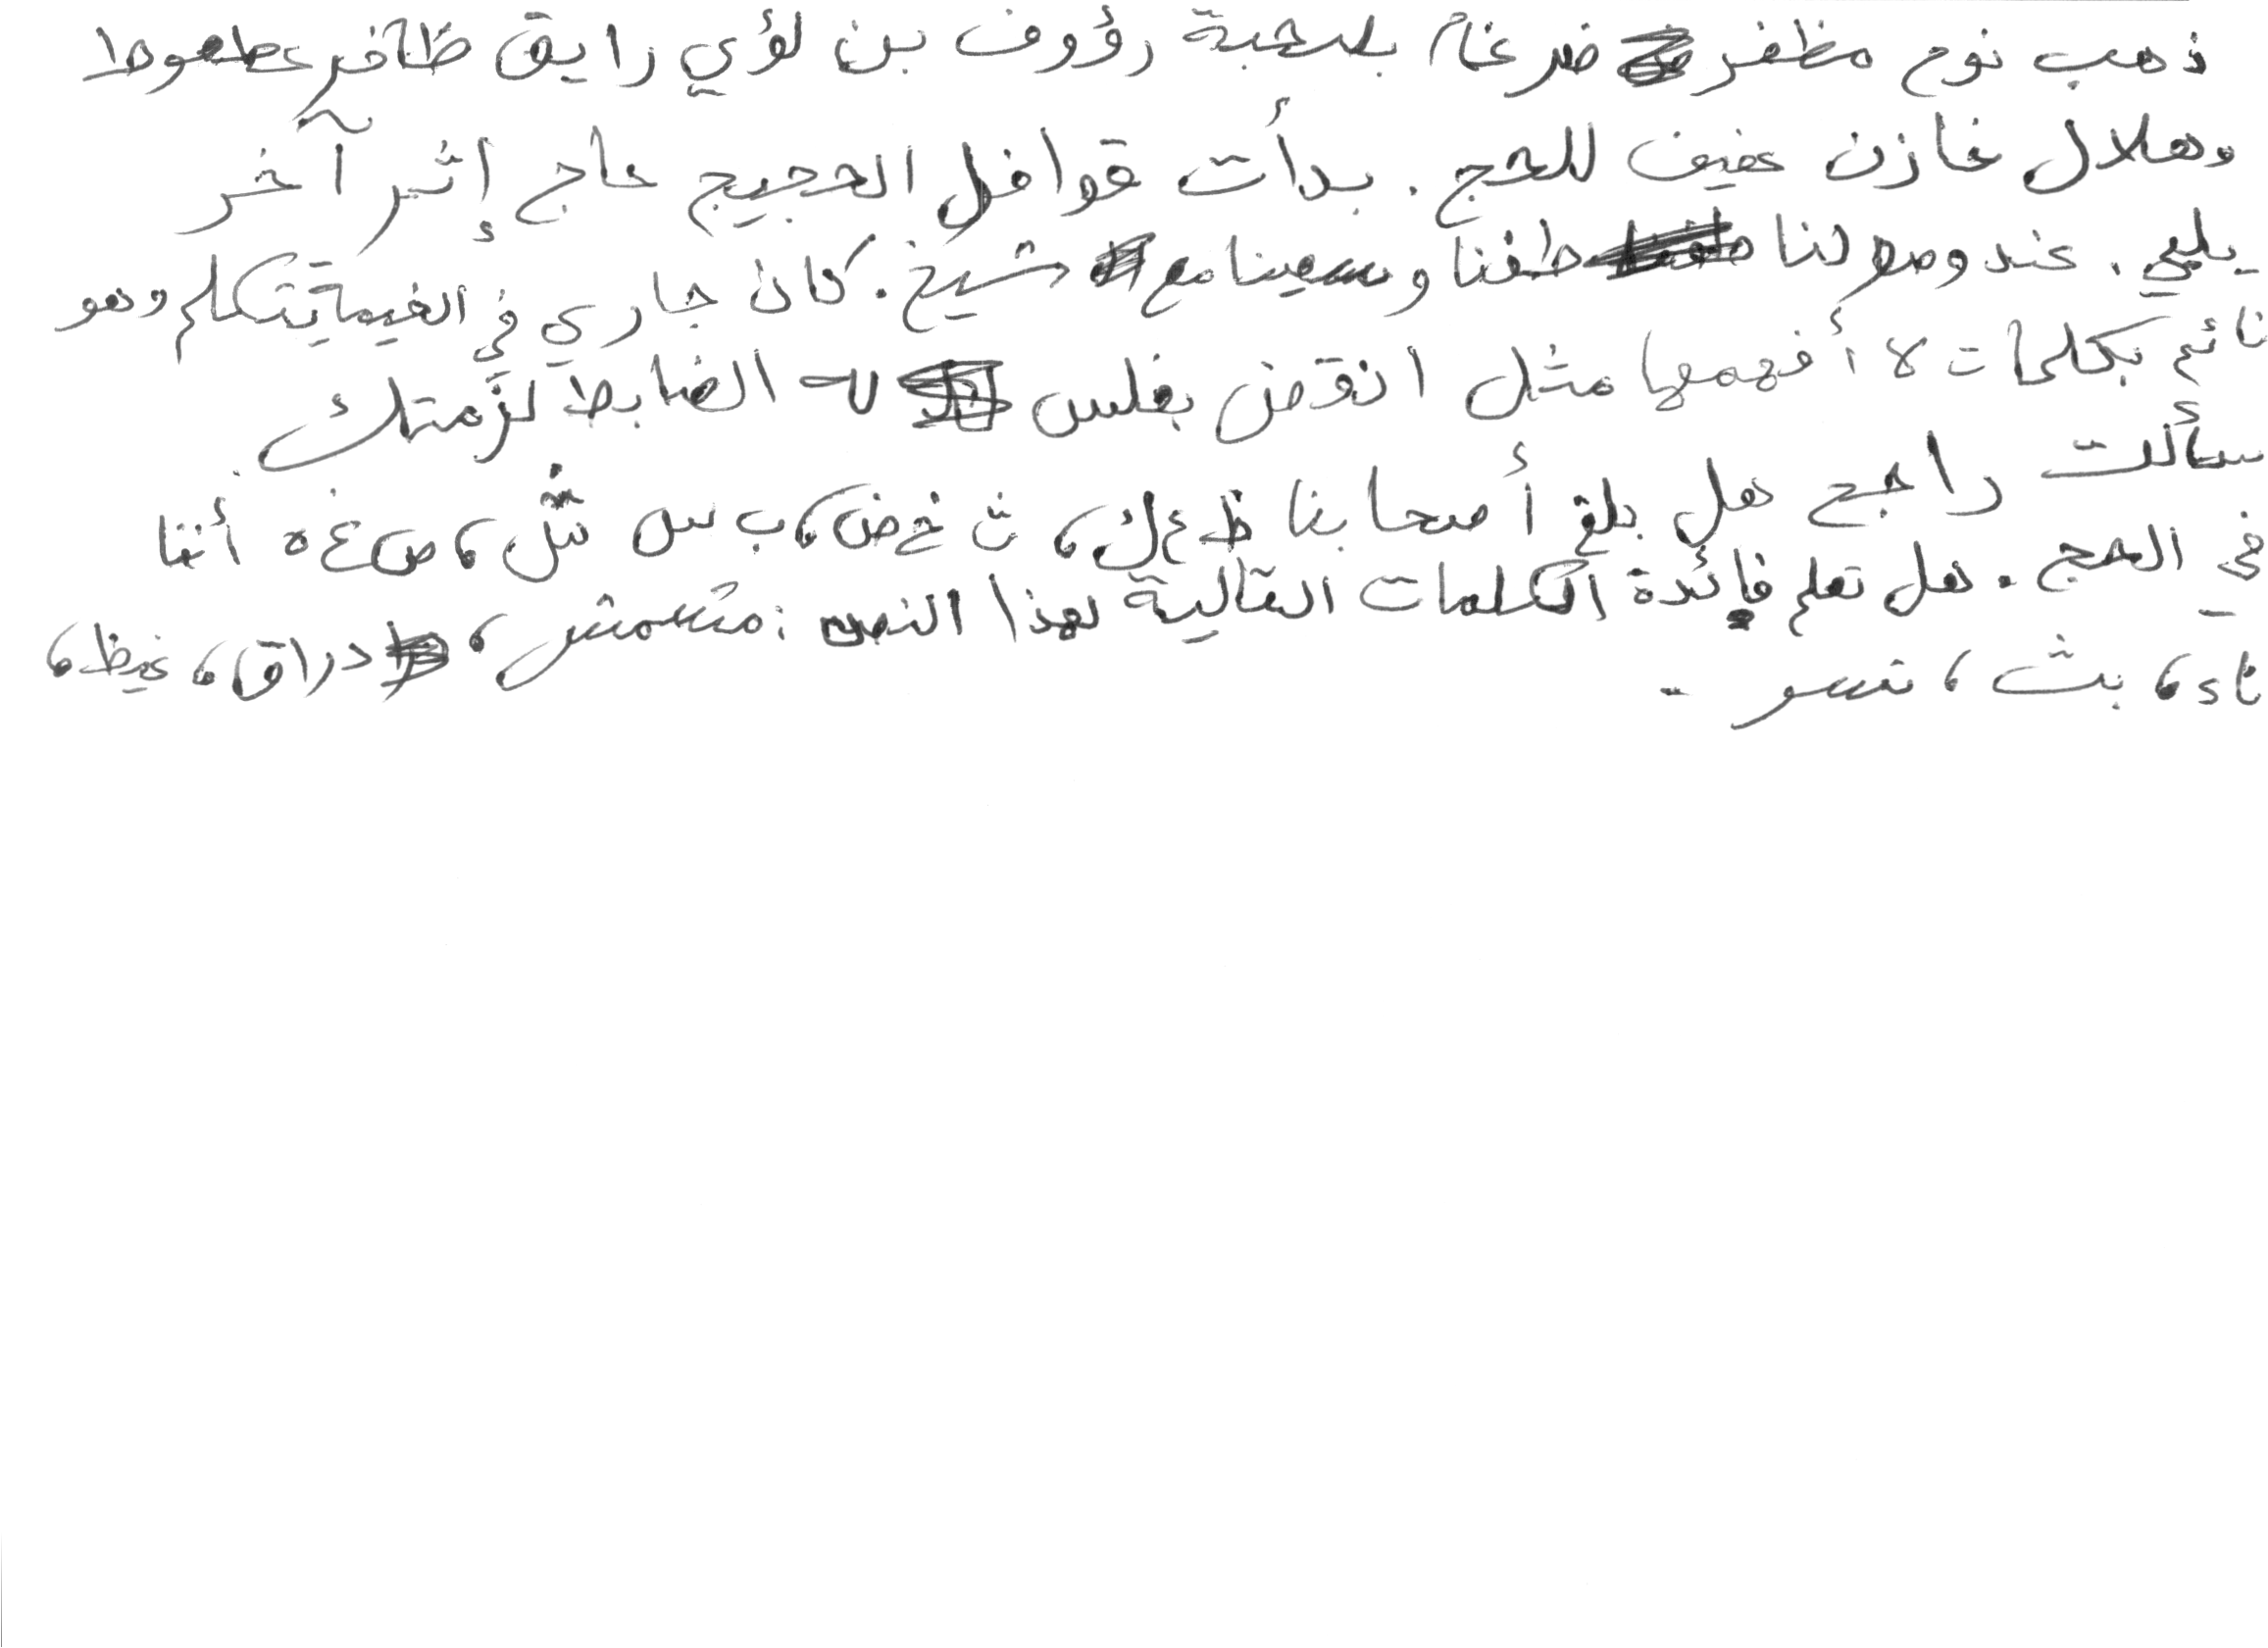 ذهب نوح مظفر ضرغام بصحبة رؤوف بن لؤي رايق ظافر عطعوط
وهلال غازن عفيف للحج. بدأت قوافل الحجيج حاج إثر آخر
يلبي. عند وصولنا طفنا وسعينا مع شيخ. كان جاري في الخيمة يتكلم وهو
نائم بكلمات لا أفهمها مثل انقض بفلس له الضابط لزمتك.
سألت راجح هل بلغ أصحابنا ظ ء ك، ث غ ض، ب س ش، ص ع ه أننا
في الحج. هل تعلم فائدة الكلمات التالية لهذا النص: مشمش، دراق، غيظ،
ثاء، بث، تسو.